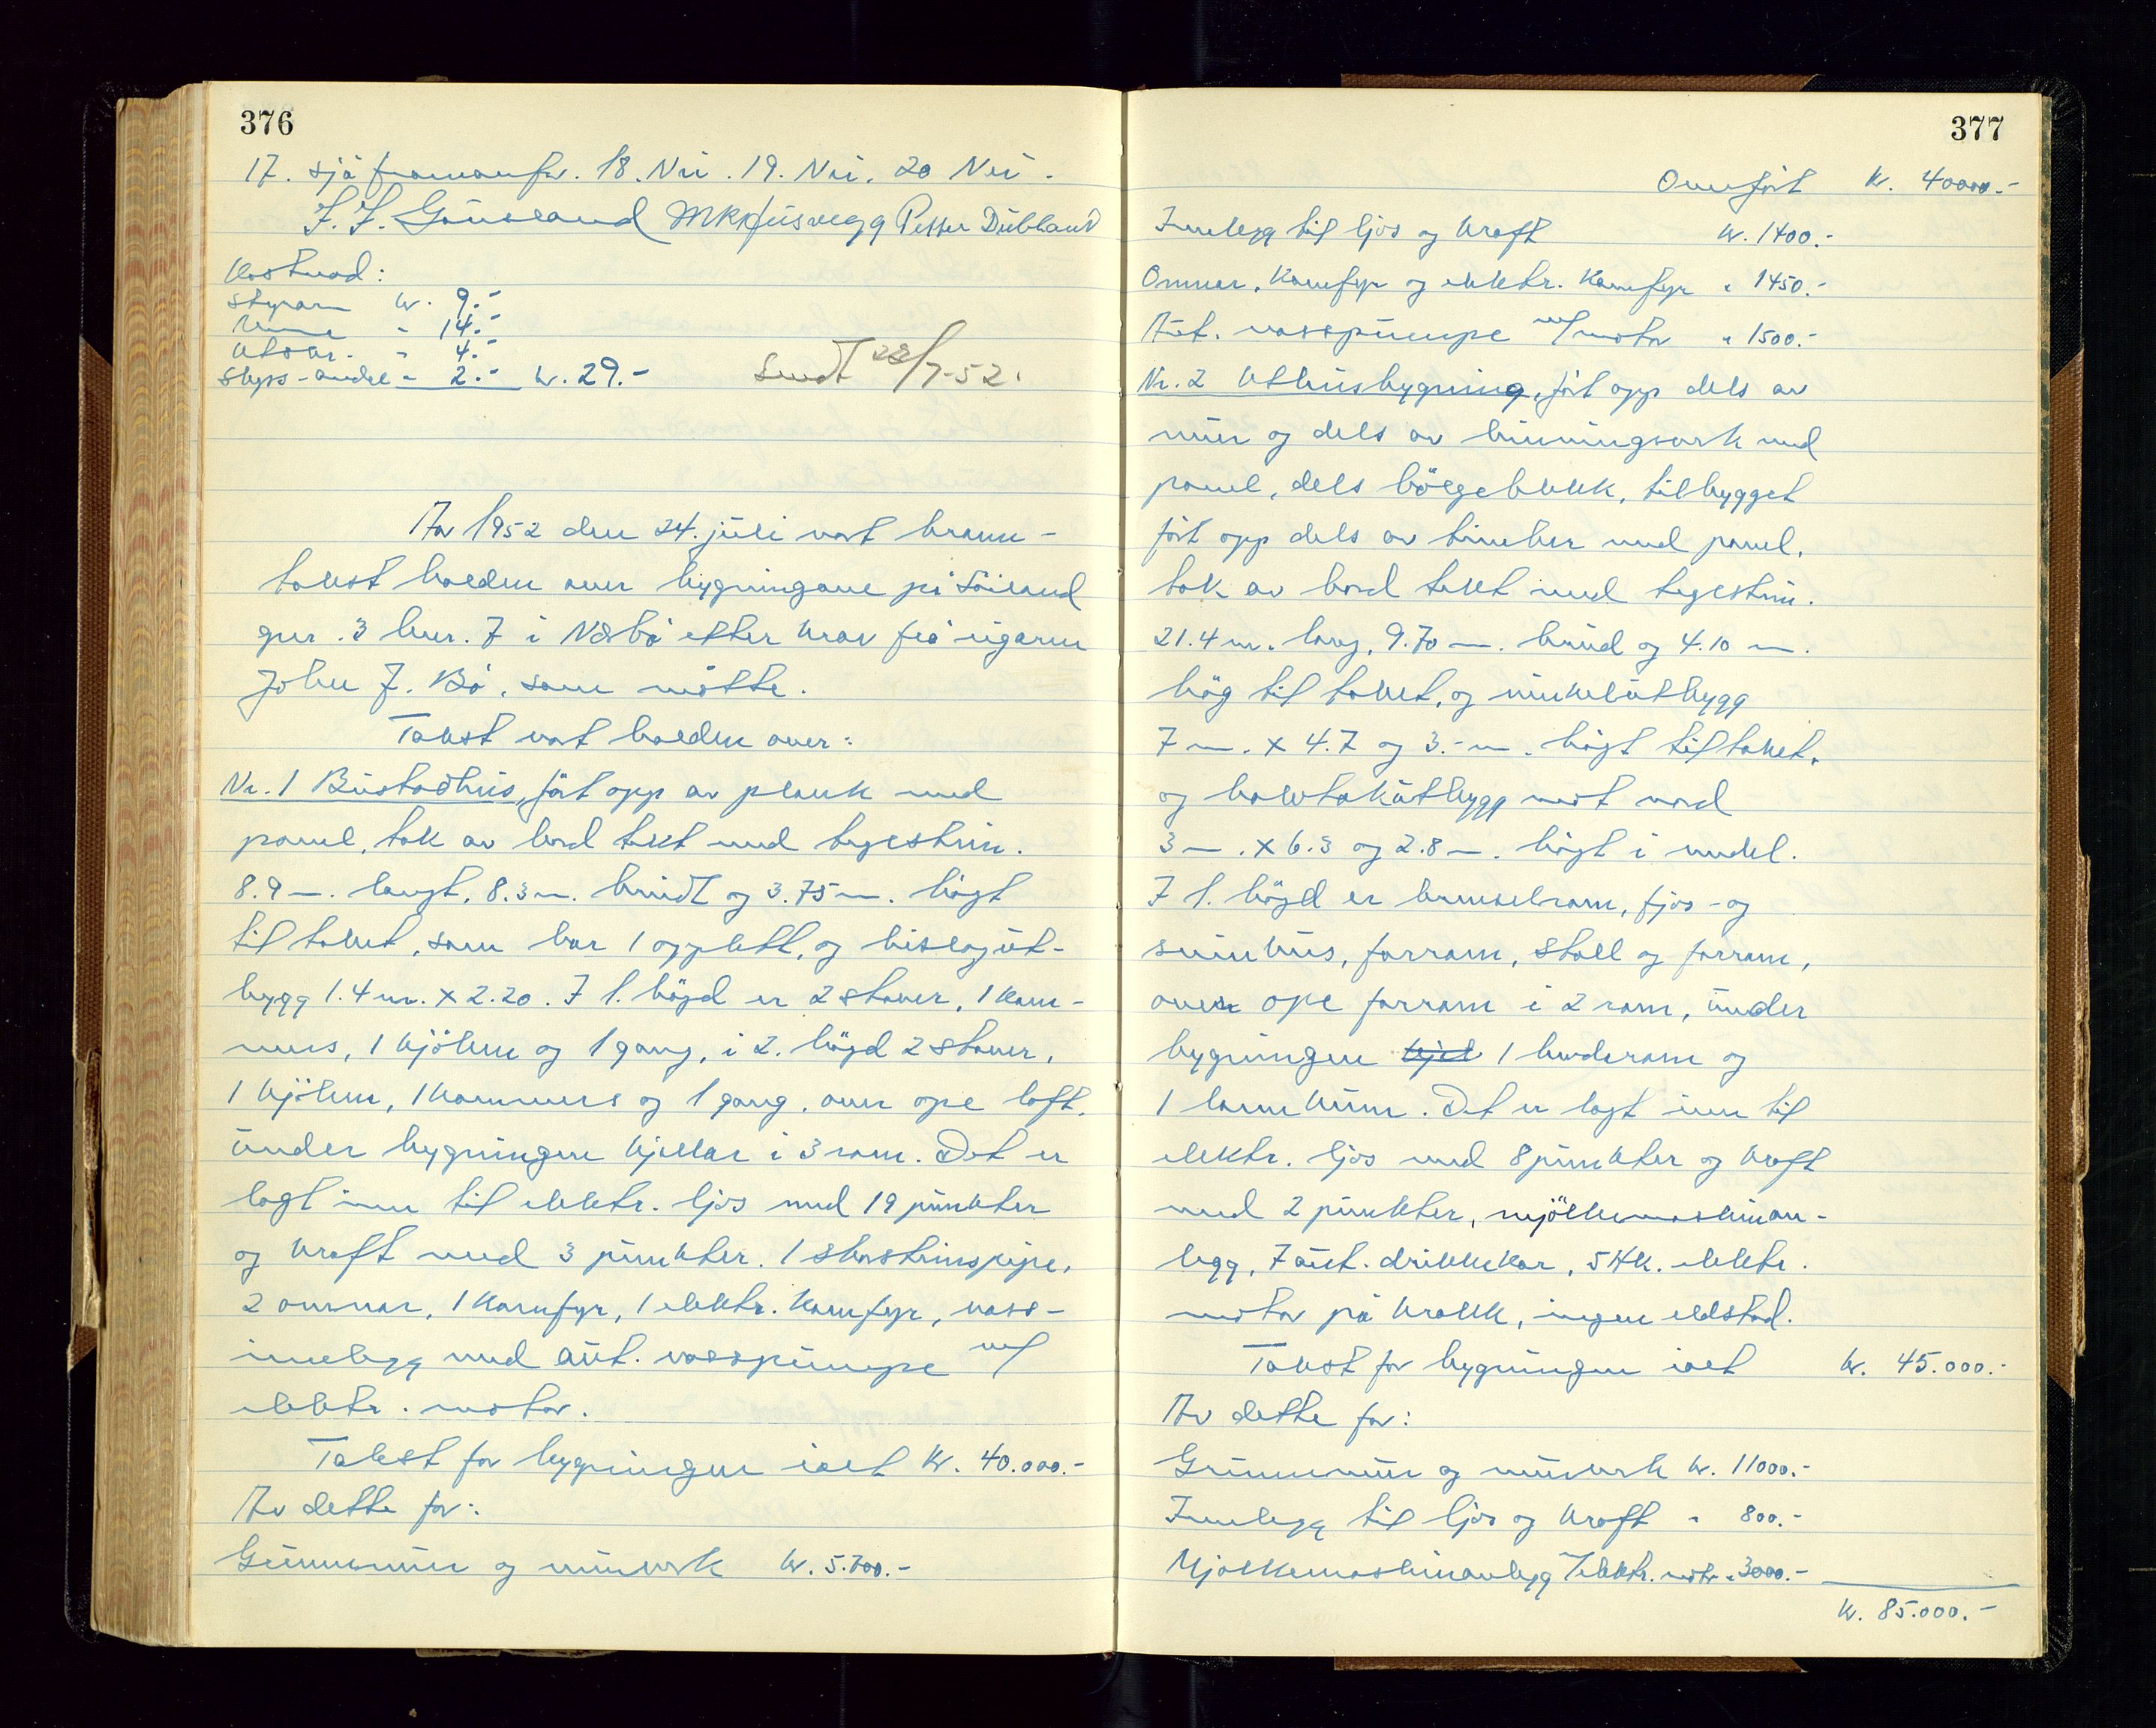 376
17. sjå framanfr. 18. Nei. 19. Nei. 20 Nei.
J. J. Gausland MKKfusvegg Petter Dubland
Kostnad:
Styrar kr. 9.-
Menn " 14.-
Utskr. " 4.-
Skyss-andel " 2.- kr. 29.-
Sendt 28/7-52.
År 1952 den 24. juli vart brann-
takst halden over bygningane på Søiland
gnr. 3 bnr. 7 i Nærbø etter krav frå eigaren
John J. Bø, som møtte.
Takst vart halden over:
Nr. 1 Bustadhus, ført opp av plank med
panel, tak av bord tekt med teglstein.
8.9 m. langt, 8.3 m. breidt og 3.75 m. høgt
til taket, som har 1 opplett, og bislagut-
bygg 1.4 m. x 2.20. I 1. høgd er 2 stover, 1 kam-
mers, 1 kjøken og 1 gang, i 2. høgd 2 stover,
1 kjøken, 1 kammers og 1 gang, over ope loft,
under bygningen kjellar i 3 rom. Det er
lagt inn til elektr. ljos med 19 punkter
og kraft med 3 punkter. 1 skorsteinspipe,
2 omnar, 1 komfyr, 1 elektr. komfyr, vass-
innlegg med aut. vasspumpe m/
elektr. motor.
Takst for bygningen ialt kr. 40.000.-
Av dette for:
Grunnmur og murverk kr. 5.700.-
377
Omført kr. 40000.-
Innlegg til ljos og kraft kr. 1400.-
Omnar, komfyr og elektr. komfyr " 1450.-
Aut. vasspumpe m/motor " 1500.-
Nr. 2 Uthusbygning, ført opp dels av
mur og dels av binningsverk med
panel, dels bølgeblekk, tilbygget
ført opp dels av timber med panel,
tak av bord tekt med teglstein.
21.4 m. lang, 9.70 m. breid og 4.10 m.
høg til taket, og vinkelutbygg
7 m. x 4.7 og 3.- m. høgt til taket,
og halvtakutbygg mot nord
3 m. x 6.3 og 2.8 m. høgt i medel.
I 1. høgd er brenselrom, fjos- og
svinhus, forrom, stall og forrom,
over ope forrom i 2 rom, under
bygningen kjel 1 hurderom og
1 landkum. Det er lagt inn til
elektr. ljos med 8 punkter og kraft
med 2 punkter, mjølkemaskinan-
legg, 7 aut. drikkekar, 5 Hk. elektr.
motor på krakk, ingen eldstad.
Takst for bygningen ialt kr. 45.000.-
Av dette for:
Grunnmur og murverk kr. 11000.-
Innlegg til ljos og kraft " 800.-
Mjølkemaskinanlegg / elektr. motor " 3000.-
kr. 85.000.-